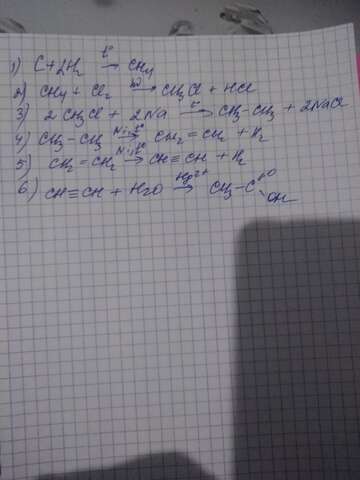 1) C + 2H₂ →(t°) CH₄
2) CH₄ + Cl₂ →(hν) CH₃Cl + HCl
3) 2CH₃Cl + 2Na →(t°) CH₃-CH₃ + 2NaCl
4) CH₃-CH₃ →(Ni, t°) CH₂=CH₂ + H₂
5) CH₂=CH₂ →(Ni, t°) CH≡CH + H₂
6) CH≡CH + H₂O →(Hg²⁺) CH₃-C=O \OH